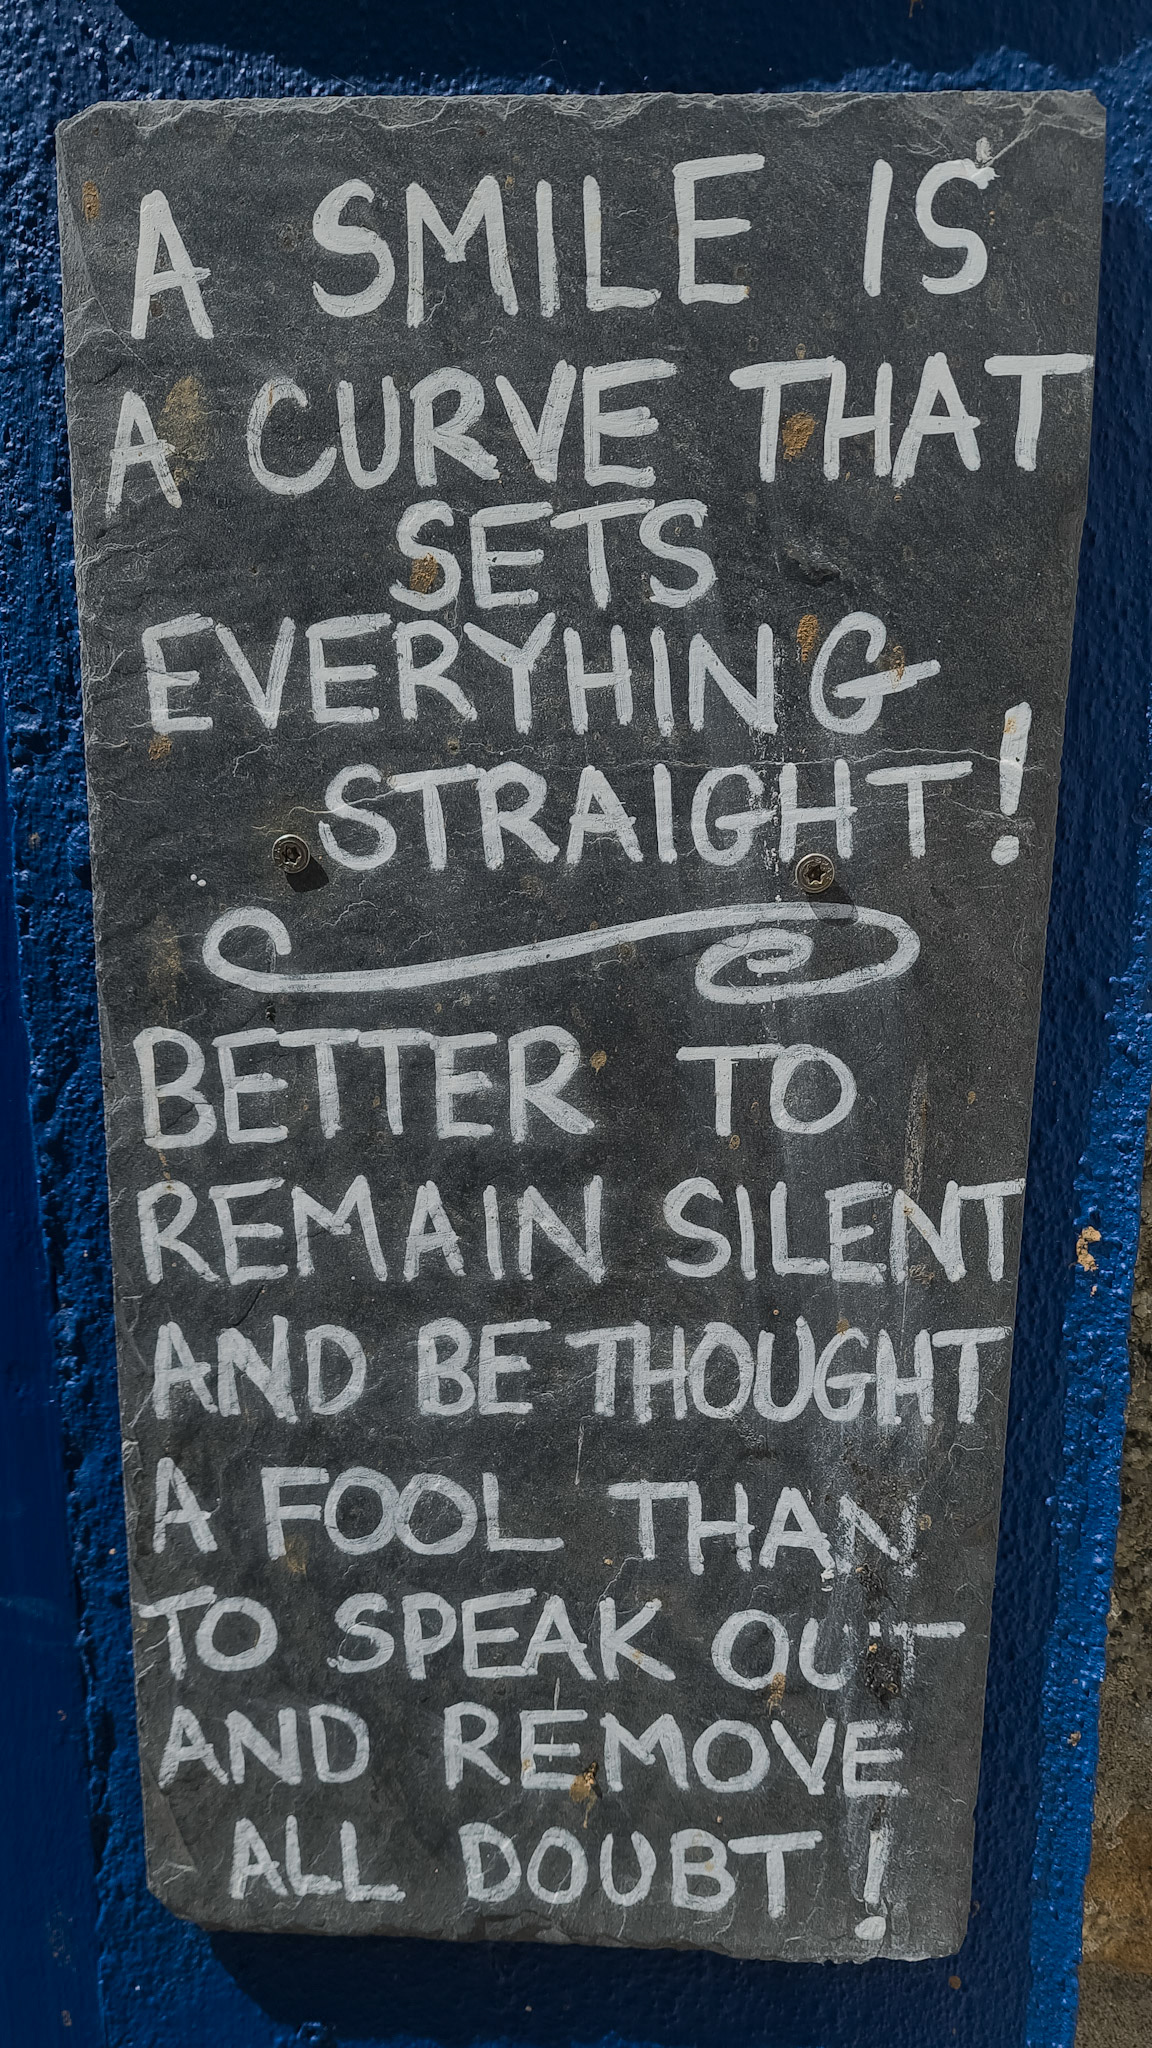 A SMILE IS
A CURVE THAT
SETS
EVERYHING
STRAIGHT!
BETTER TO
REMAIN SILENT
AND BE THOUGHT
A FOOL THAN
TO SPEAK OUT
AND REMOVE
ALL DOUBT!